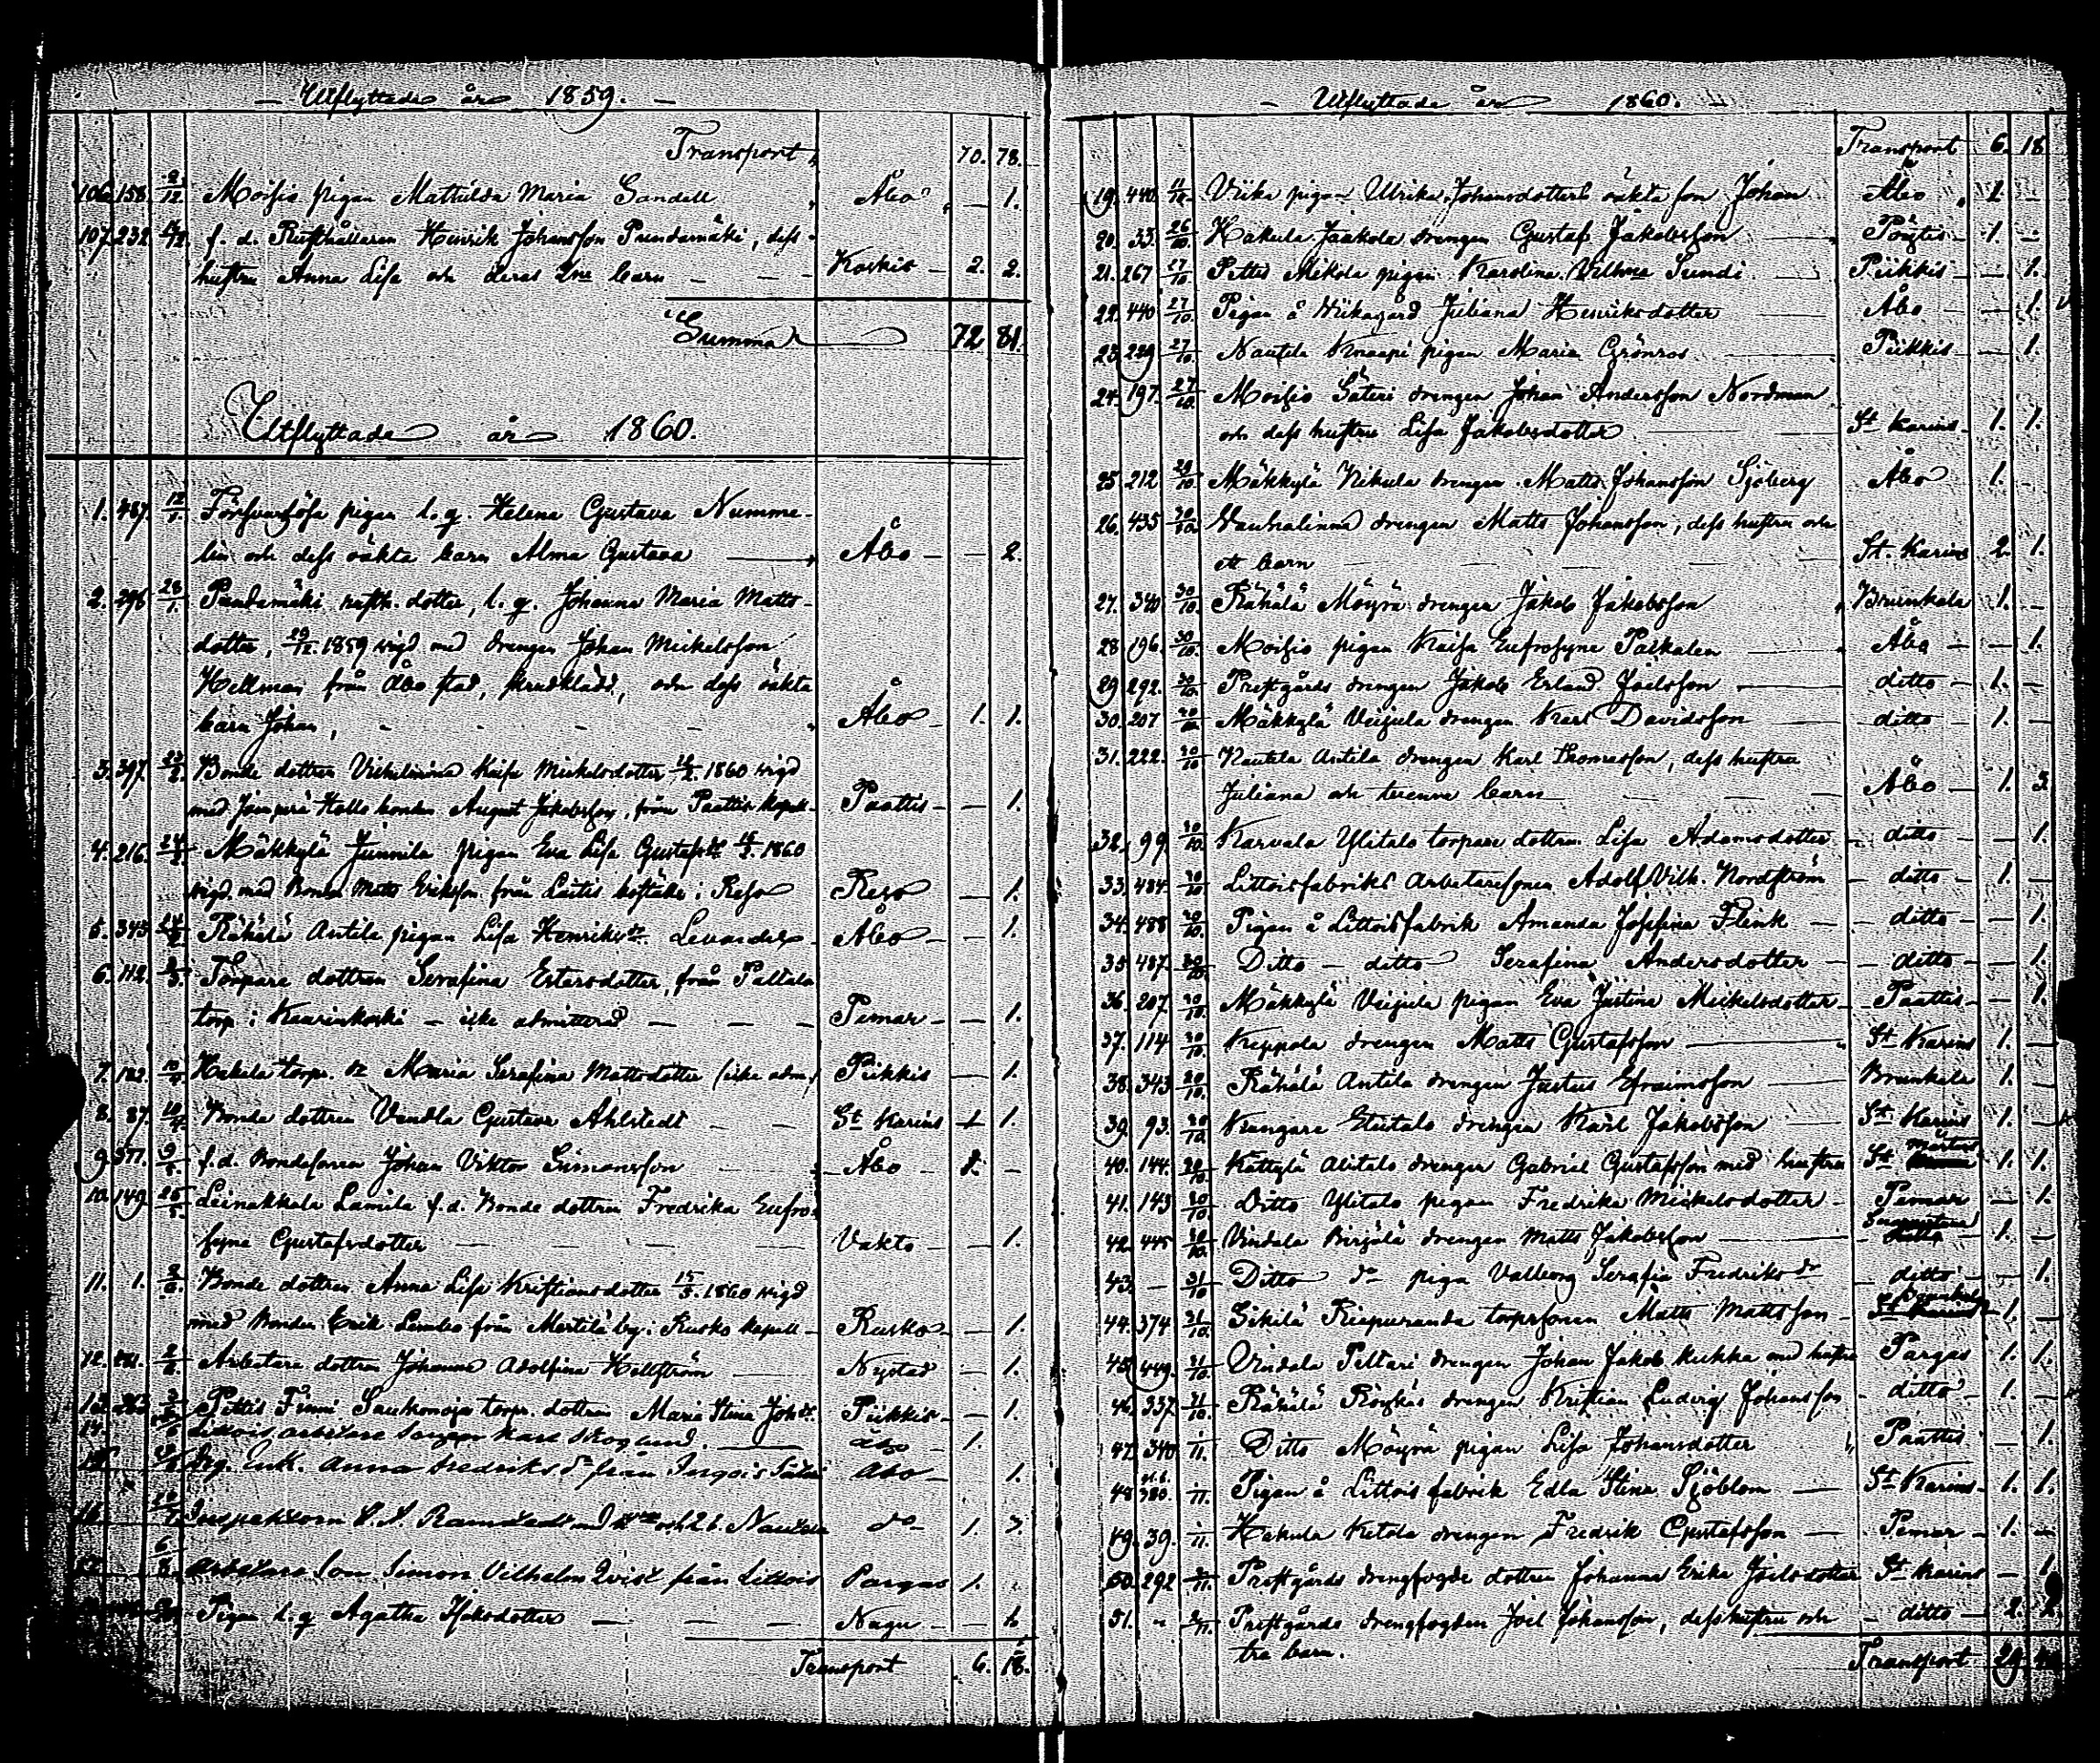 — Utflyttade år 1859. —
Transport, 70. 78.
106. 158. 9/12 Moisio pigan Mathilda Maria Sandell Åbo — 1.
107. 232. f. d. Rusthållaren Henrik Johansson Pundamäki, dess
hustru Anna Lisa och deras 2ne barn — Koskis — 2. 2.
Summa 72 81.
Utflyttade år 1860.
1. 487. 12/1. Försvarslösa pigan l. q. Helena Gustava Numme-
lin och dess oäkta barn Alma Gustava Åbo — — 2.
2. 296 28/1. Pundamäki rusth. dotter, l. q. Johanna Maria Matts-
dotter, 29/12. 1859 vigd med drengen Johan Mickelsson
Hellman från Åbo stad, och dess oäkta
barn Johan, Åbo — 1. 1.
3. 397. 23/2. Bonde dottren Kaisa Mickelsdotter 1860 vigd
med August Jakobsson, från Paattis kapell — Paattis — — 1.
4. 216. 24/2. Mäkkylä Junnila pigan Eva Lisa Gustafsdr 1860
vigd med Bonden Matts Eriksson från i Reso Reso — 1.
5. 343 Rähälä Antila pigan Lisa Henriksdr Levander Åbo — — 1.
6. 112. Torpare dottren Serafina Estersdotter, från Paltala
torp i Kaarinkoski — icke admitterad — Pemar — — 1.
7. 182. 10/4 Hakula torp. dr Maria Serafina Mattsdotter (icke adm.) Piikkis — 1.
8. 87. 10/4. Bonde dottren Vendla Gustava Ahlstedt — St Karins 1.
9. 377. 9/5. f. d. Bondesonen Johan Viktor Simonsson Åbo — 1. —
10. 149. 25/5. Leinakkala Lamila f. d. Bonde dottren Fredrika Eufro-
syne Gustafsdotter — Vakto — — 1.
11. 1. 8/6. Bonde dottren Anna Lisa Kristiansdotter 15/5. 1860 vigd
med Bonden Erik Lembo från Merttilä by i Rusko kapell — Rusko — — 1.
12. 2/6. Arbetare dottren Johanna Adolfina Hellström Nystad — 1.
13. 263 Pettis Finni Saukonoja torp. dottren Maria Stina Johdr. Piikkis — — 1.
14. Littois arbetare Karl Skoglund. Åbo — 1.
Enk. Anna Fredriksdr från Ingois Säteri Åbo — 1.
Inspektoren Ramstedt Nautela do — 1. 3.
Arbetare Son Simon Vilhelm Qvist från Littois Pargas 1.
Pigan l. q. Agatha Isaksdotter — Nagu — — 1.
Transport 6. 18.
— Utflyttade år 1860. —
Transport 6. 18
19. 440. 11/10. Viika pigan Ulrika Johansdotters oäkta son Johan Åbo 1. —
20. 33. 26/10. Hakula Jaakola drengen Gustaf Jakobsson Pöytis — 1. —
21. 267 27/10. Pettis Mikola pigan Karolina Vilhma Sundi Piikkis — — 1.
22. 440 27/10. Pigan å Viikagård Juliana Henriksdotter Åbo — — 1.
23. 229 27/10. Nautela Knaapi pigan Maria Grönros Piikkis — — 1.
24. 197. 27/10. Moisio Säteri drengen Johan Andersson Nordman
och dess hustru Lisa Jakobsdotter St Karins — 1. 1.
25. 212 29/10. Mäkkylä Nikula drengen Matts Johansson Sjöberg Åbo 1. —
26. 435 30/10. Vanhalinna drengen Matts Johansson, dess hustru och
ett barn St. Karins 2. 1.
27. 340 30/10. Rähälä Möyrä drengen Jakob Jakobsson Brunkala 1. —
28. 196. 30/10. Moisio pigan Kaisa Eufrosyne Palkalen Åbo — — 1.
29. 292. 30/10. Prestgårds drengen Jakob Erland Joelsson ditto — 1. —
30. 207 30/10. Mäkkylä Veijula drengen Karl Davidsson ditto — 1. —
31. 222. 30/10 Nautela Antila drengen Karl Thomasson, dess hustru
Juliana och tvenne barn Åbo — 1. 3
32. 99. 30/10. Karvala Ylitalo torpare dottren Lisa Adamsdotter ditto — — 1.
33. 484. 30/10 Littoisfabriks Arbetaresonen Adolf Vilh. Nordström ditto — 1. —
34. 488 30/10. Pigan å Littoisfabrik Amanda Josefina Flenk ditto — — 1.
35. 487. 30/10. Ditto — ditto Serafina Andersdotter ditto — — 1.
36. 207. 30/10. Mäkkylä Veijula pigan Eva Justina Mickelsdotter Paattis — — 1.
37. 114 30/10. Keppola drengen Matts Gustafsson St Karins 1. —
38. 343 30/10. Rähälä Antila drengen Justus Efraimsson Brunkala 1. —
39. 93. 30/10. Kungare Etutalo drengen Karl Jakobsson St Karins 1. —
40. 144. 30/10. Kättylä Alitalo drengen Gabriel Gustafsson med hustru St Mårtens 1. 1.
41. 143 30/10 Ditto Ylitalo pigan Fredrika Mickelsdotter Pemar — 1.
42. 445 30/10. Vindala Birjälä drengen Matts Jakobsson 1. —
43. — 31/10 Ditto do piga Valborg Serafia Fredriksdr ditto — 1.
44. 374 31/10. Sikilä Riepuranda torpsonen Matts Mattsson Brunkala 1. —
45. 449. 31/10. Vindala Peltari drengen Johan Jakob Kukka med hustru Pargas 1. 1.
46. 337. 31/10. Rähälä Röykäs drengen Kristian Ludvig Johansson ditto — 1. —
47. 340 1/11. Ditto Möyrä pigan Lisa Johansdotter Paattis — 1.
48 380. 1/11. Pigan å Littois fabrik Edla Stina Sjöblom St Karins — 1. 1.
49. 39. 1/11. Hakula Ketola drengen Fredrik Gustafsson Pemar — 1. —
50. 292 Prestgårds drengfogde dottren Johanna Erika Joelsdotter St Karins — 1.
51. Prestgårds drengfogden Joel Johansson, dess hustru och ditto — 2.
tre barn.
Transport 29.